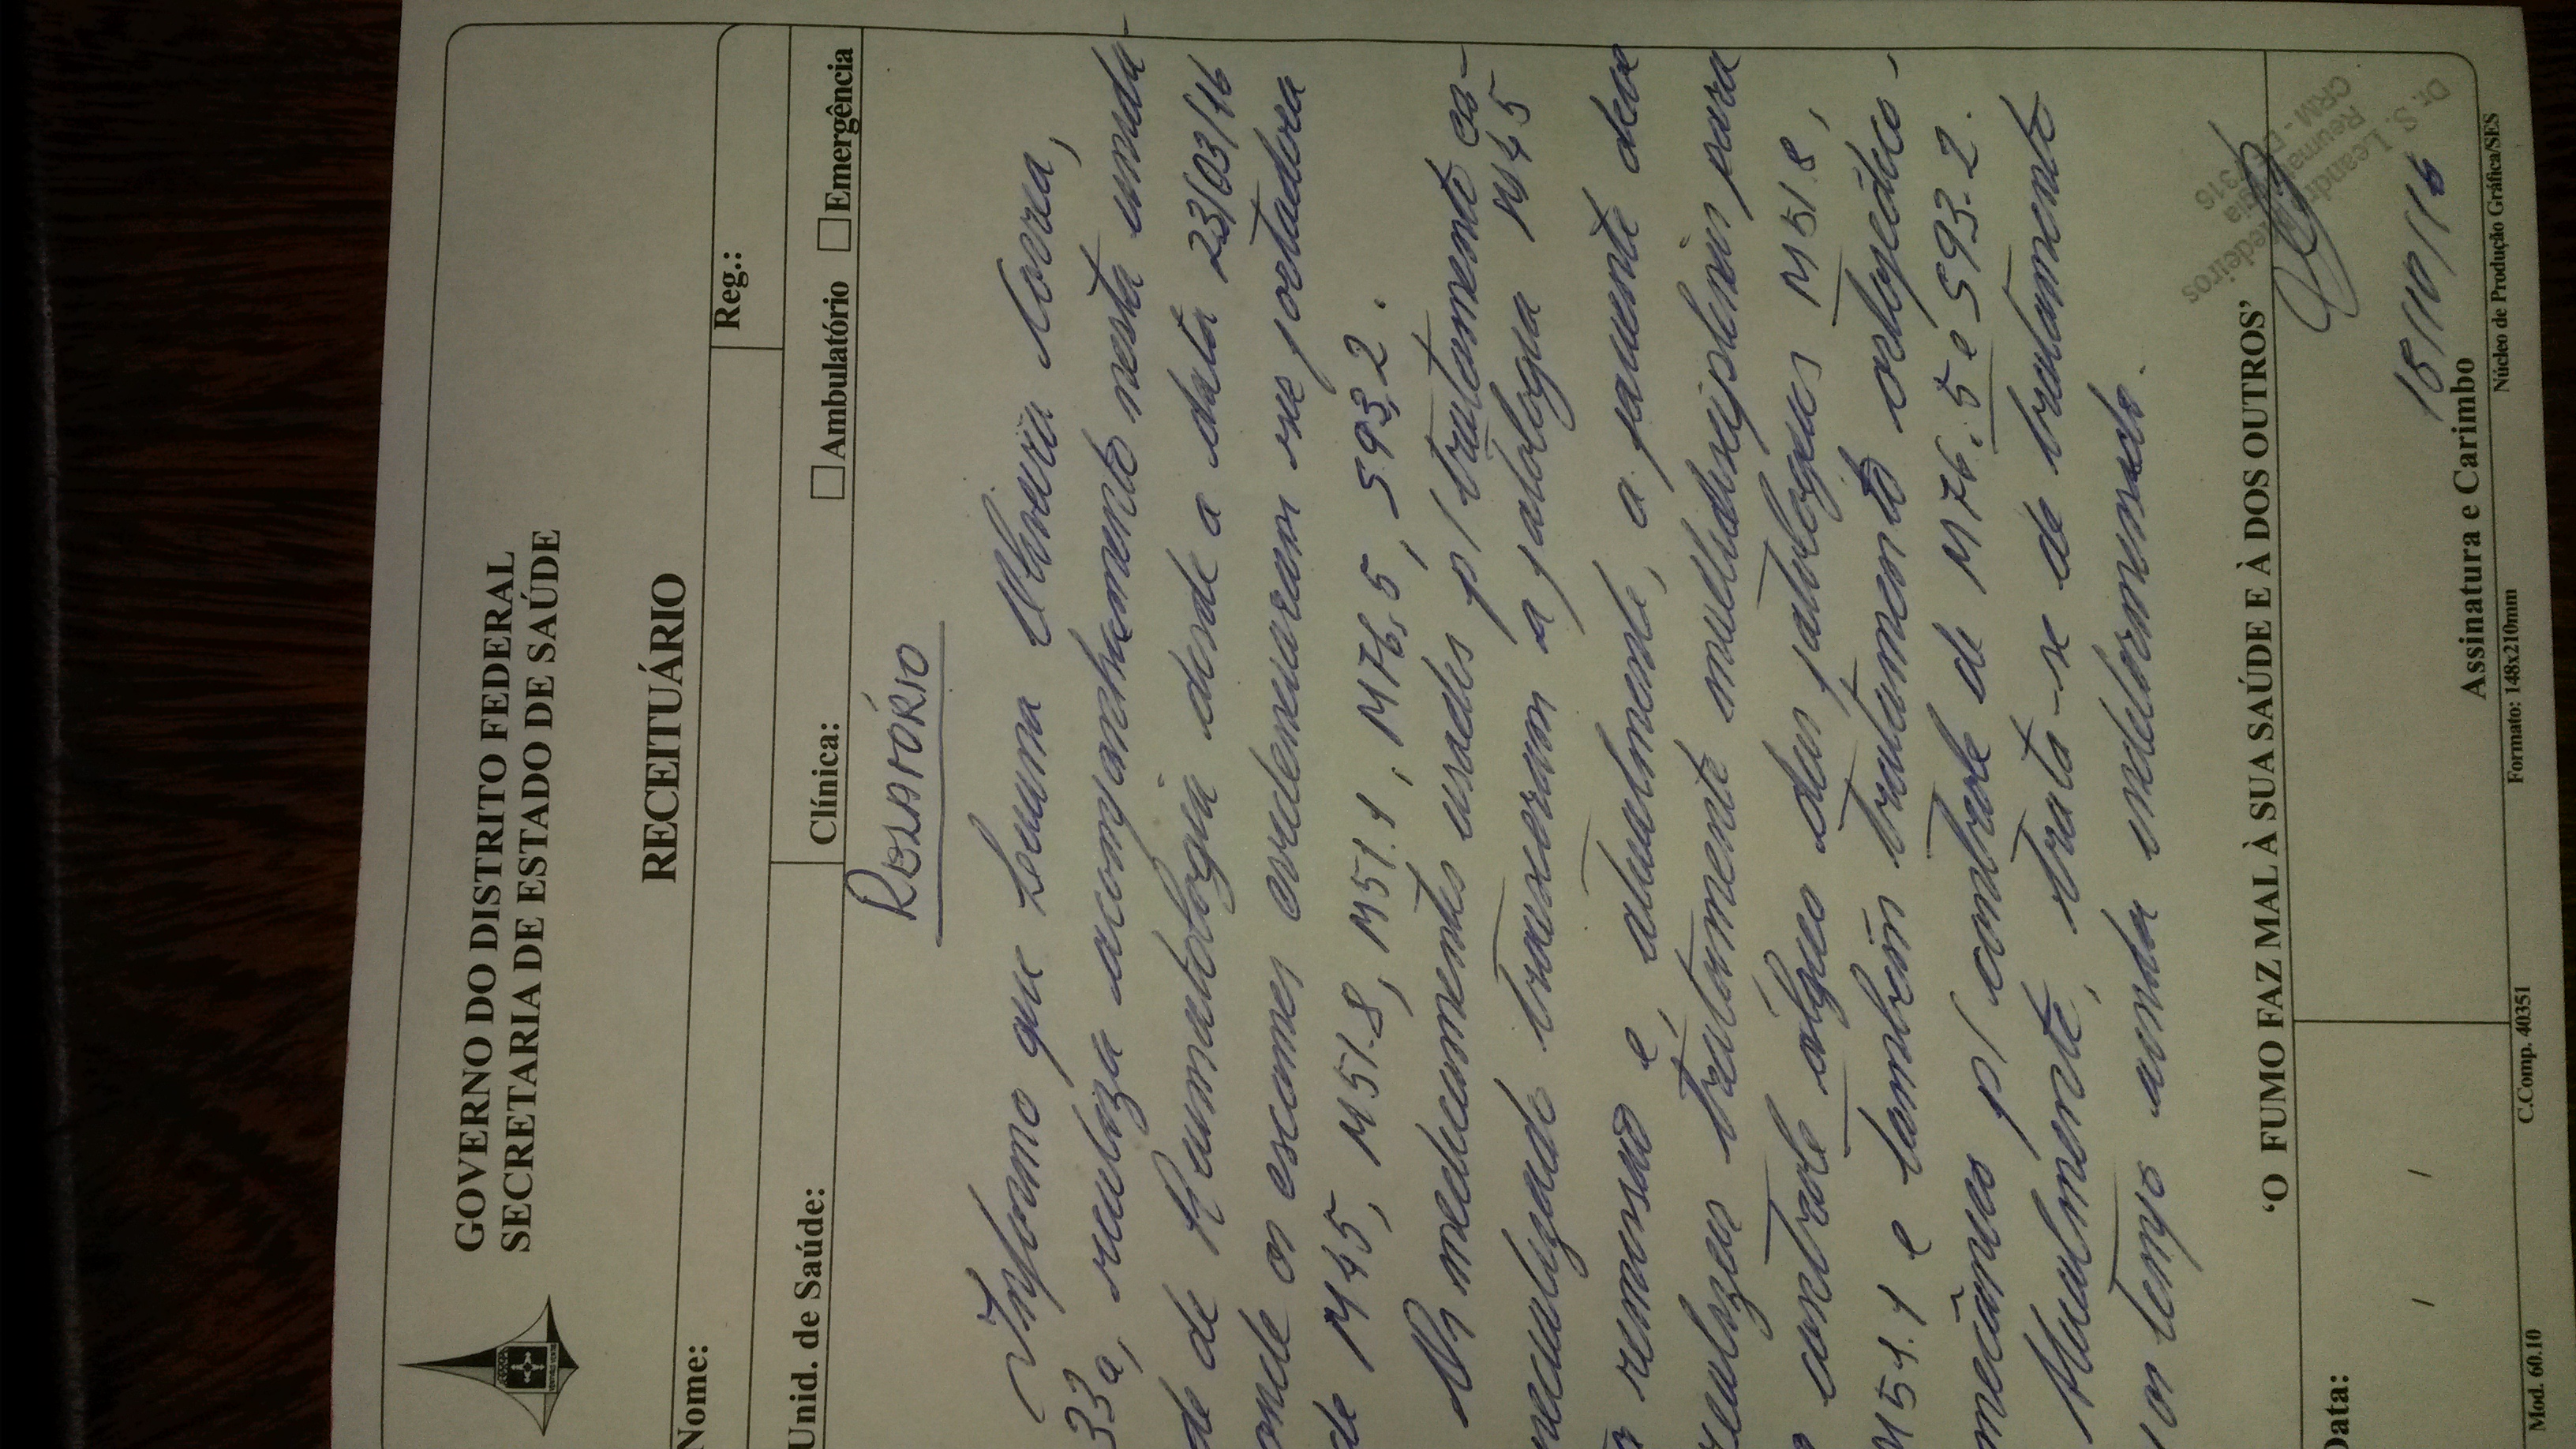 GOVERNO DO DISTRITO FEDERAL
SECRETARIA DE ESTADO DE SAÚDE
VENTVRIS VENTIS
RECEITUÁRIO
Nome:
Reg.:
Unid. de Saúde:
Clínica:
Ambulatório
Emergência
RELATÓRIO
Informo que Luana Oliveira Correa,
33a, realiza acompanhamento nesta unida-
de de Reumatologia desde a data 23/03/16
onde os exames evidenciaram ser portadora
de M45, M51.8, M51.1, M76.5, S93.2.
Os medicamentos usados p/ tratamento es-
pecializado trouxeram a patologia M45
remissão e, atualmente, a paciente deve
realizar tratamento multidisciplinar para
o controle álgico das patologias M51.8,
M51.1 e também tratamento ortopédico,
mecânico p/ controle de M76.5 e S93.2.
Atualmente, trata-se de tratamento
por tempo ainda indeterminado.
'O FUMO FAZ MAL À SUA SAÚDE E À DOS OUTROS'
Data:
/ /
Dr. S. Leandro Medeiros
Reumatologia
CRM - 316
18/10/16
Assinatura e Carimbo
Mod. 60.10
C.Comp. 40351
Formato: 148x210mm
Núcleo de Produção Gráfica/SES